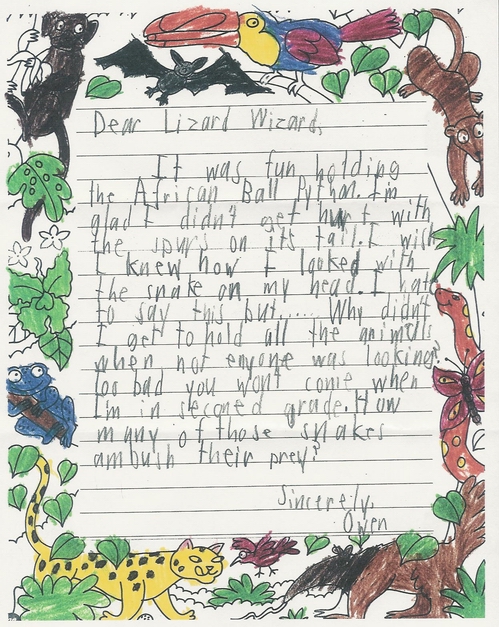 Dear Lizard Wizard,
It was fun holding
the African Ball Python. I'm
glad I didn't get hurt with
the spurs on it's tail. I wish
I knew how I looked with
the snake on my head. I hate
to say this but...... Why didn't
I get to hold all the animals
when not enyone was looking?
Too bad you won't come when
I'm in second grade. How
many of those snakes
ambush their prey?
Sincerely,
Owen